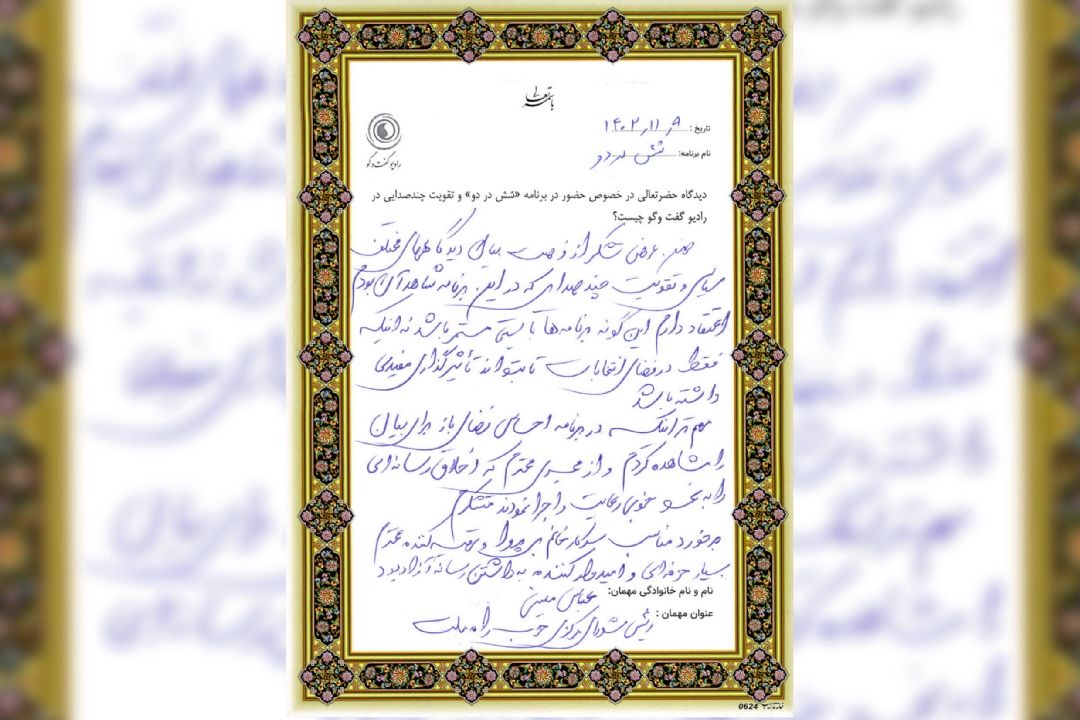 باسمه تعالی
تاریخ: ۱۴۰۲/۱۱/۹
رادیو گفت‌وگو
نام برنامه: شش در دو
دیدگاه حضرتعالی در خصوص حضور در برنامه «شش در دو» و تقویت چندصدایی در
رادیو گفت وگو چیست؟
ضمن عرض تشکر از فرصت بیان دیدگاههای مختلف
سیاسی و تقویت چند صدایی که در این برنامه شاهد آن بودم
اعتقاد دارم این گونه برنامه‌ها بایستی مستمر باشد نه اینکه
فقط در فضای انتخابات تا بتواند تأثیرگذاری مفیدی
داشته باشد
مهم تر اینکه در برنامه احساس فضای باز برای بیان
را مشاهده کردم و از مجری محترم که اخلاق رسانه‌ای
را به نحو خوبی رعایت و اجرا نمودند متشکرم
برخورد مناسب سرکار خانم بی پروا و تهیه کننده محترم
بسیار حرفه‌ای و امیدوار کننده به داشتن رسانه آزاد بود
نام و نام خانوادگی مهمان: عباس
عنوان مهمان: رئیس شورای مرکزی حزب راه ملت
0624